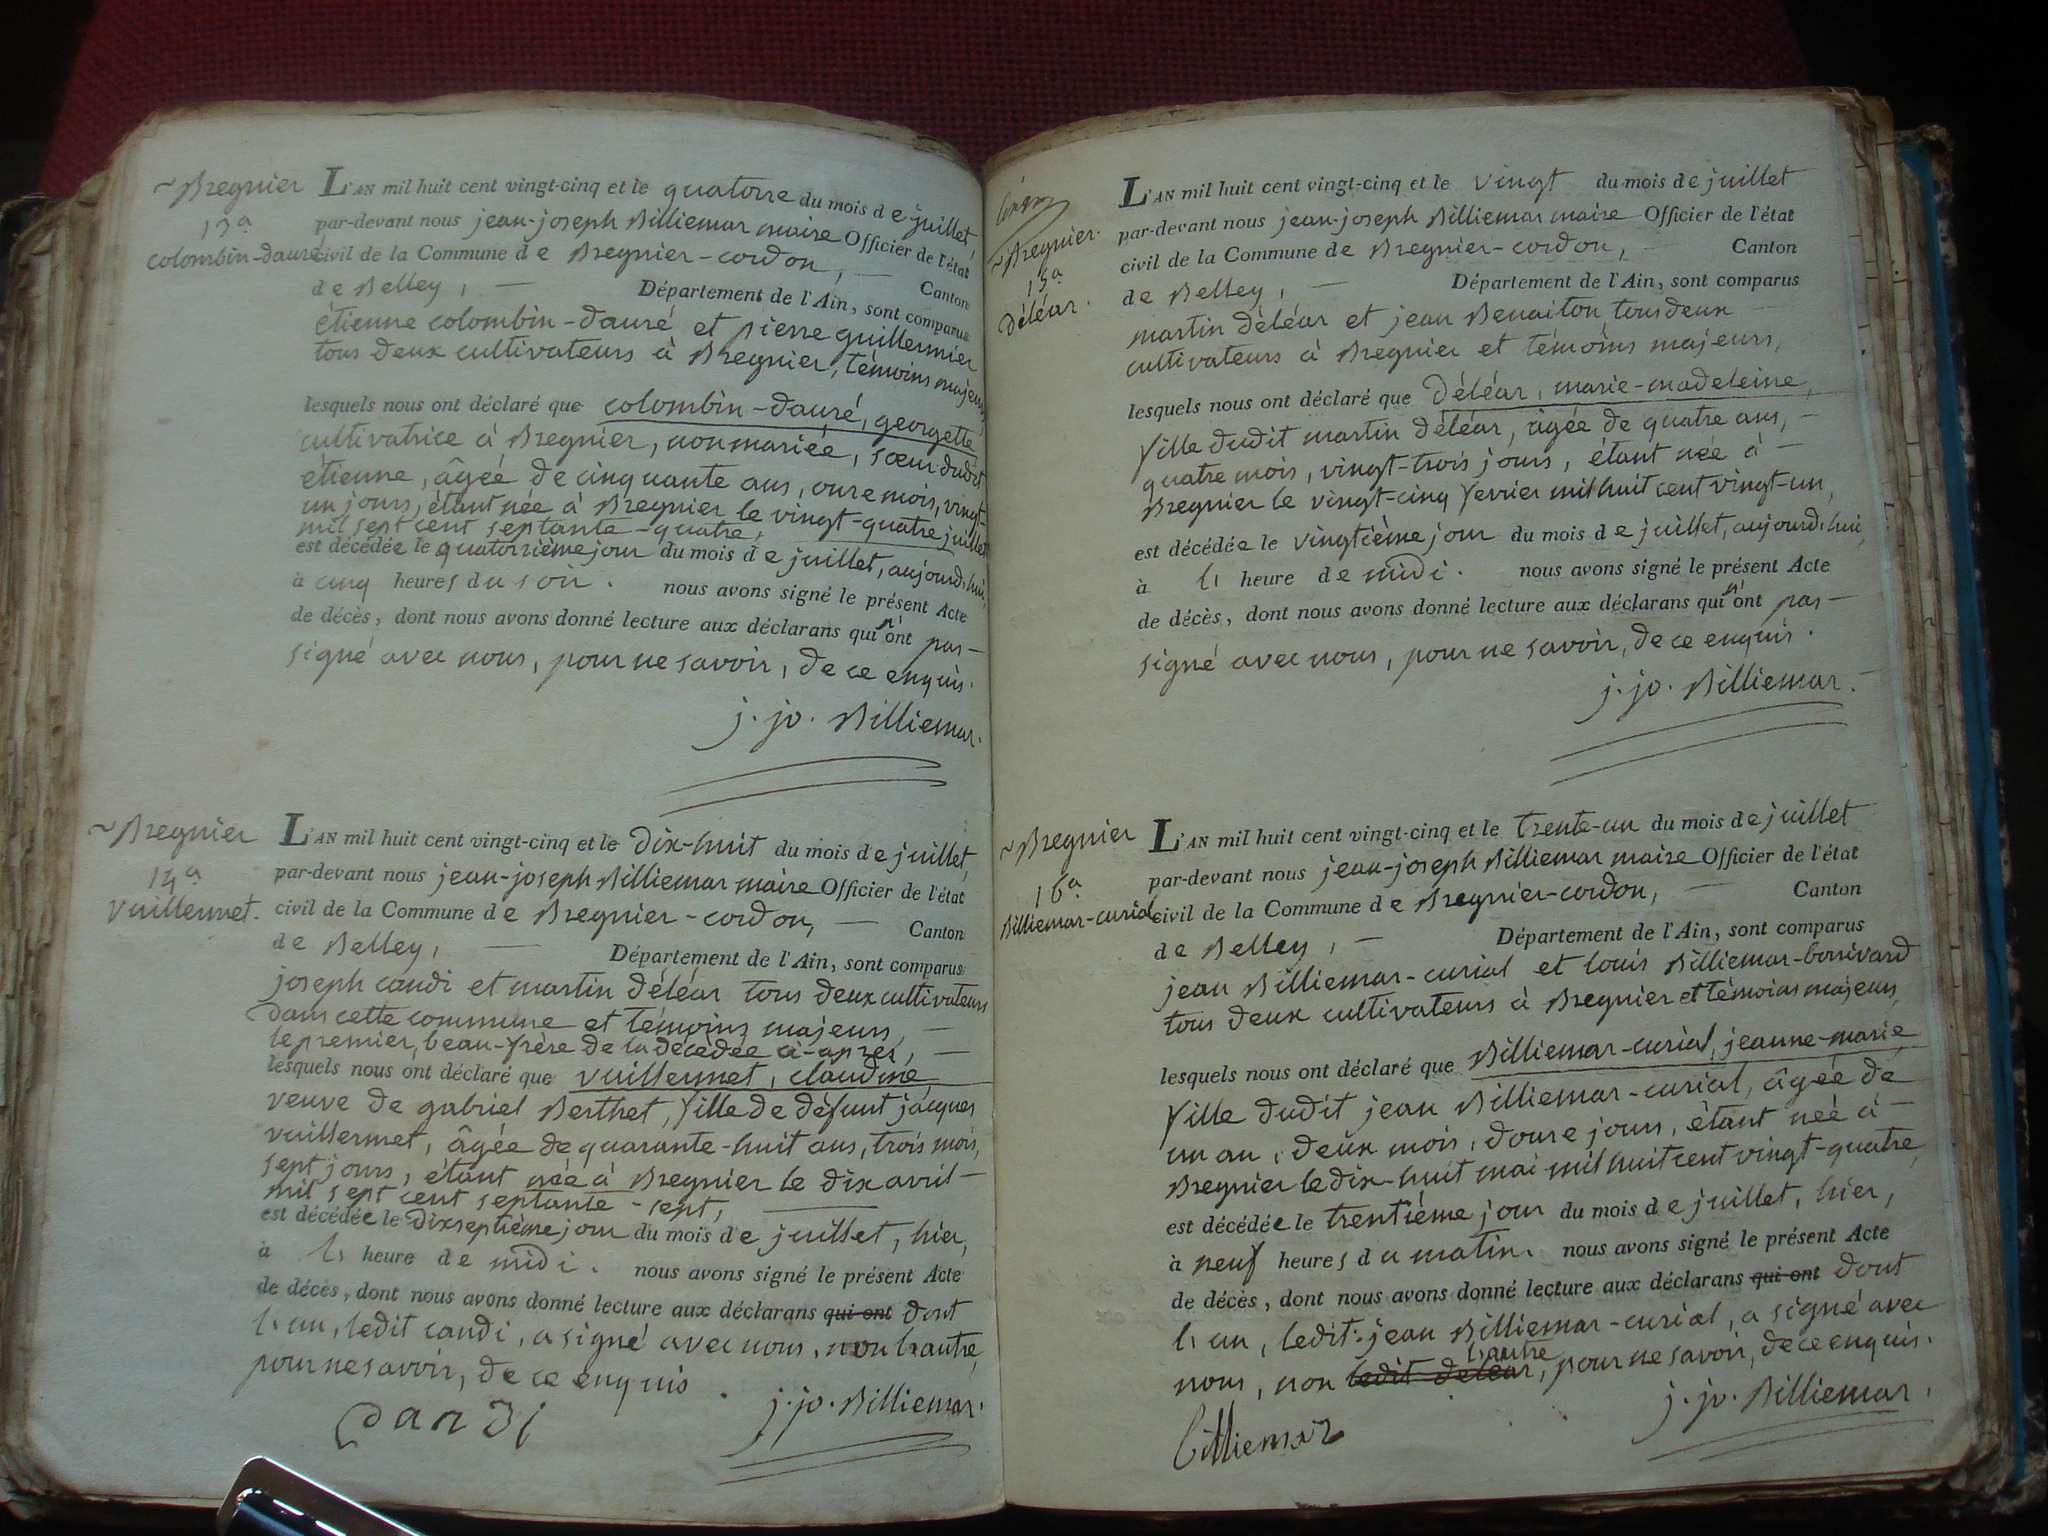 ~Bregnier
13.a
colombin-dauré
L'AN mil huit cent vingt-cinq et le quatorze du mois de juillet,
par-devant nous jean-joseph Billiemar maire Officier de l'état
civil de la Commune de Bregnier-cordon, — Canton
de Belley, — Département de l'Ain, sont comparus
étienne colombin-dauré et pierre guillermier
tous deux cultivateurs à Bregnier, témoins majeurs,
lesquels nous ont déclaré que colombin-dauré, georgette,
cultivatrice à Bregnier, non mariée, sœur dudit
étienne, âgée de cinquante ans, onze mois, vingt-
un jours, étant née à Bregnier le vingt-quatre juillet
mil sept cent septante-quatre,
est décédée le quatorzième jour du mois de juillet, aujourd'hui,
à cinq heures du soir. nous avons signé le présent Acte
de décès, dont nous avons donné lecture aux déclarans qui n'ont pas—
signé avec nous, pour ne savoir, de ce enquis.
j. jo. Billiemar.
~Bregnier
14.a
vuillermet.
L'AN mil huit cent vingt-cinq et le dix-huit du mois de juillet,
par-devant nous jean-joseph Billiemar maire Officier de l'état
civil de la Commune de Bregnier-cordon, — Canton
de Belley, — Département de l'Ain, sont comparus
joseph candi et martin déléar tous deux cultivateurs
dans cette commune et témoins majeurs, —
le premier, beau-frère de la décédée ci-après, —
lesquels nous ont déclaré que vuillermet, claudine,
veuve de gabriel Berthet, fille de défunt jacques
vuillermet, âgée de quarante-huit ans, trois mois,
sept jours, étant née à Bregnier le dix avril—
mil sept cent septante-sept,
est décédée le dixseptième jour du mois de juillet, hier,
à l' heure de midi. nous avons signé le présent Acte
de décès, dont nous avons donné lecture aux déclarans qui ont dont
l'un, ledit candi, a signé avec nous, non l'autre,
pour ne savoir, de ce enquis.
candi
j. jo. Billiemar.
~Bregnier.
15.a
déléar.
L'AN mil huit cent vingt-cinq et le vingt du mois de juillet
par-devant nous jean-joseph Billiemar maire Officier de l'état
civil de la Commune de Bregnier-cordon, — Canton
de Belley, — Département de l'Ain, sont comparus
martin déléar et jean Benaiton tous deux
cultivateurs à Bregnier et témoins majeurs,
lesquels nous ont déclaré que déléar, marie-madeleine,
fille dudit martin déléar, âgée de quatre ans, —
quatre mois, vingt-trois jours, étant née à —
Bregnier le vingt-cinq fevrier mil huit cent vingt-un,
est décédée le vingtième jour du mois de juillet, aujourd'hui,
à l' heure de midi. nous avons signé le présent Acte
de décès, dont nous avons donné lecture aux déclarans qui n'ont pas—
signé avec nous, pour ne savoir, de ce enquis.
j. jo. Billiemar.
~Bregnier
16.a
Billiemar-curial
L'AN mil huit cent vingt-cinq et le trente-un du mois de juillet
par-devant nous jean-joseph Billiemar maire Officier de l'état
civil de la Commune de Bregnier-cordon, — Canton
de Belley, — Département de l'Ain, sont comparus
jean Billiemar-curial et louis Billiemar-bonivard
tous deux cultivateurs à Bregnier et témoins majeurs,
lesquels nous ont déclaré que Billiemar-curial, jeanne-marie
fille dudit jean Billiemar-curial, âgée de
un an, deux mois, douze jours, étant née à —
Bregnier le dix-huit mai mil huit cent vingt-quatre,
est décédée le trentième jour du mois de juillet, hier,
à neuf heures du matin. nous avons signé le présent Acte
de décès, dont nous avons donné lecture aux déclarans qui ont dont
l'un, ledit jean Billiemar-curial, a signé avec
nous, non ledit deléar l'autre, pour ne savoir, de ce enquis.
billiemar
j. jo. Billiemar.